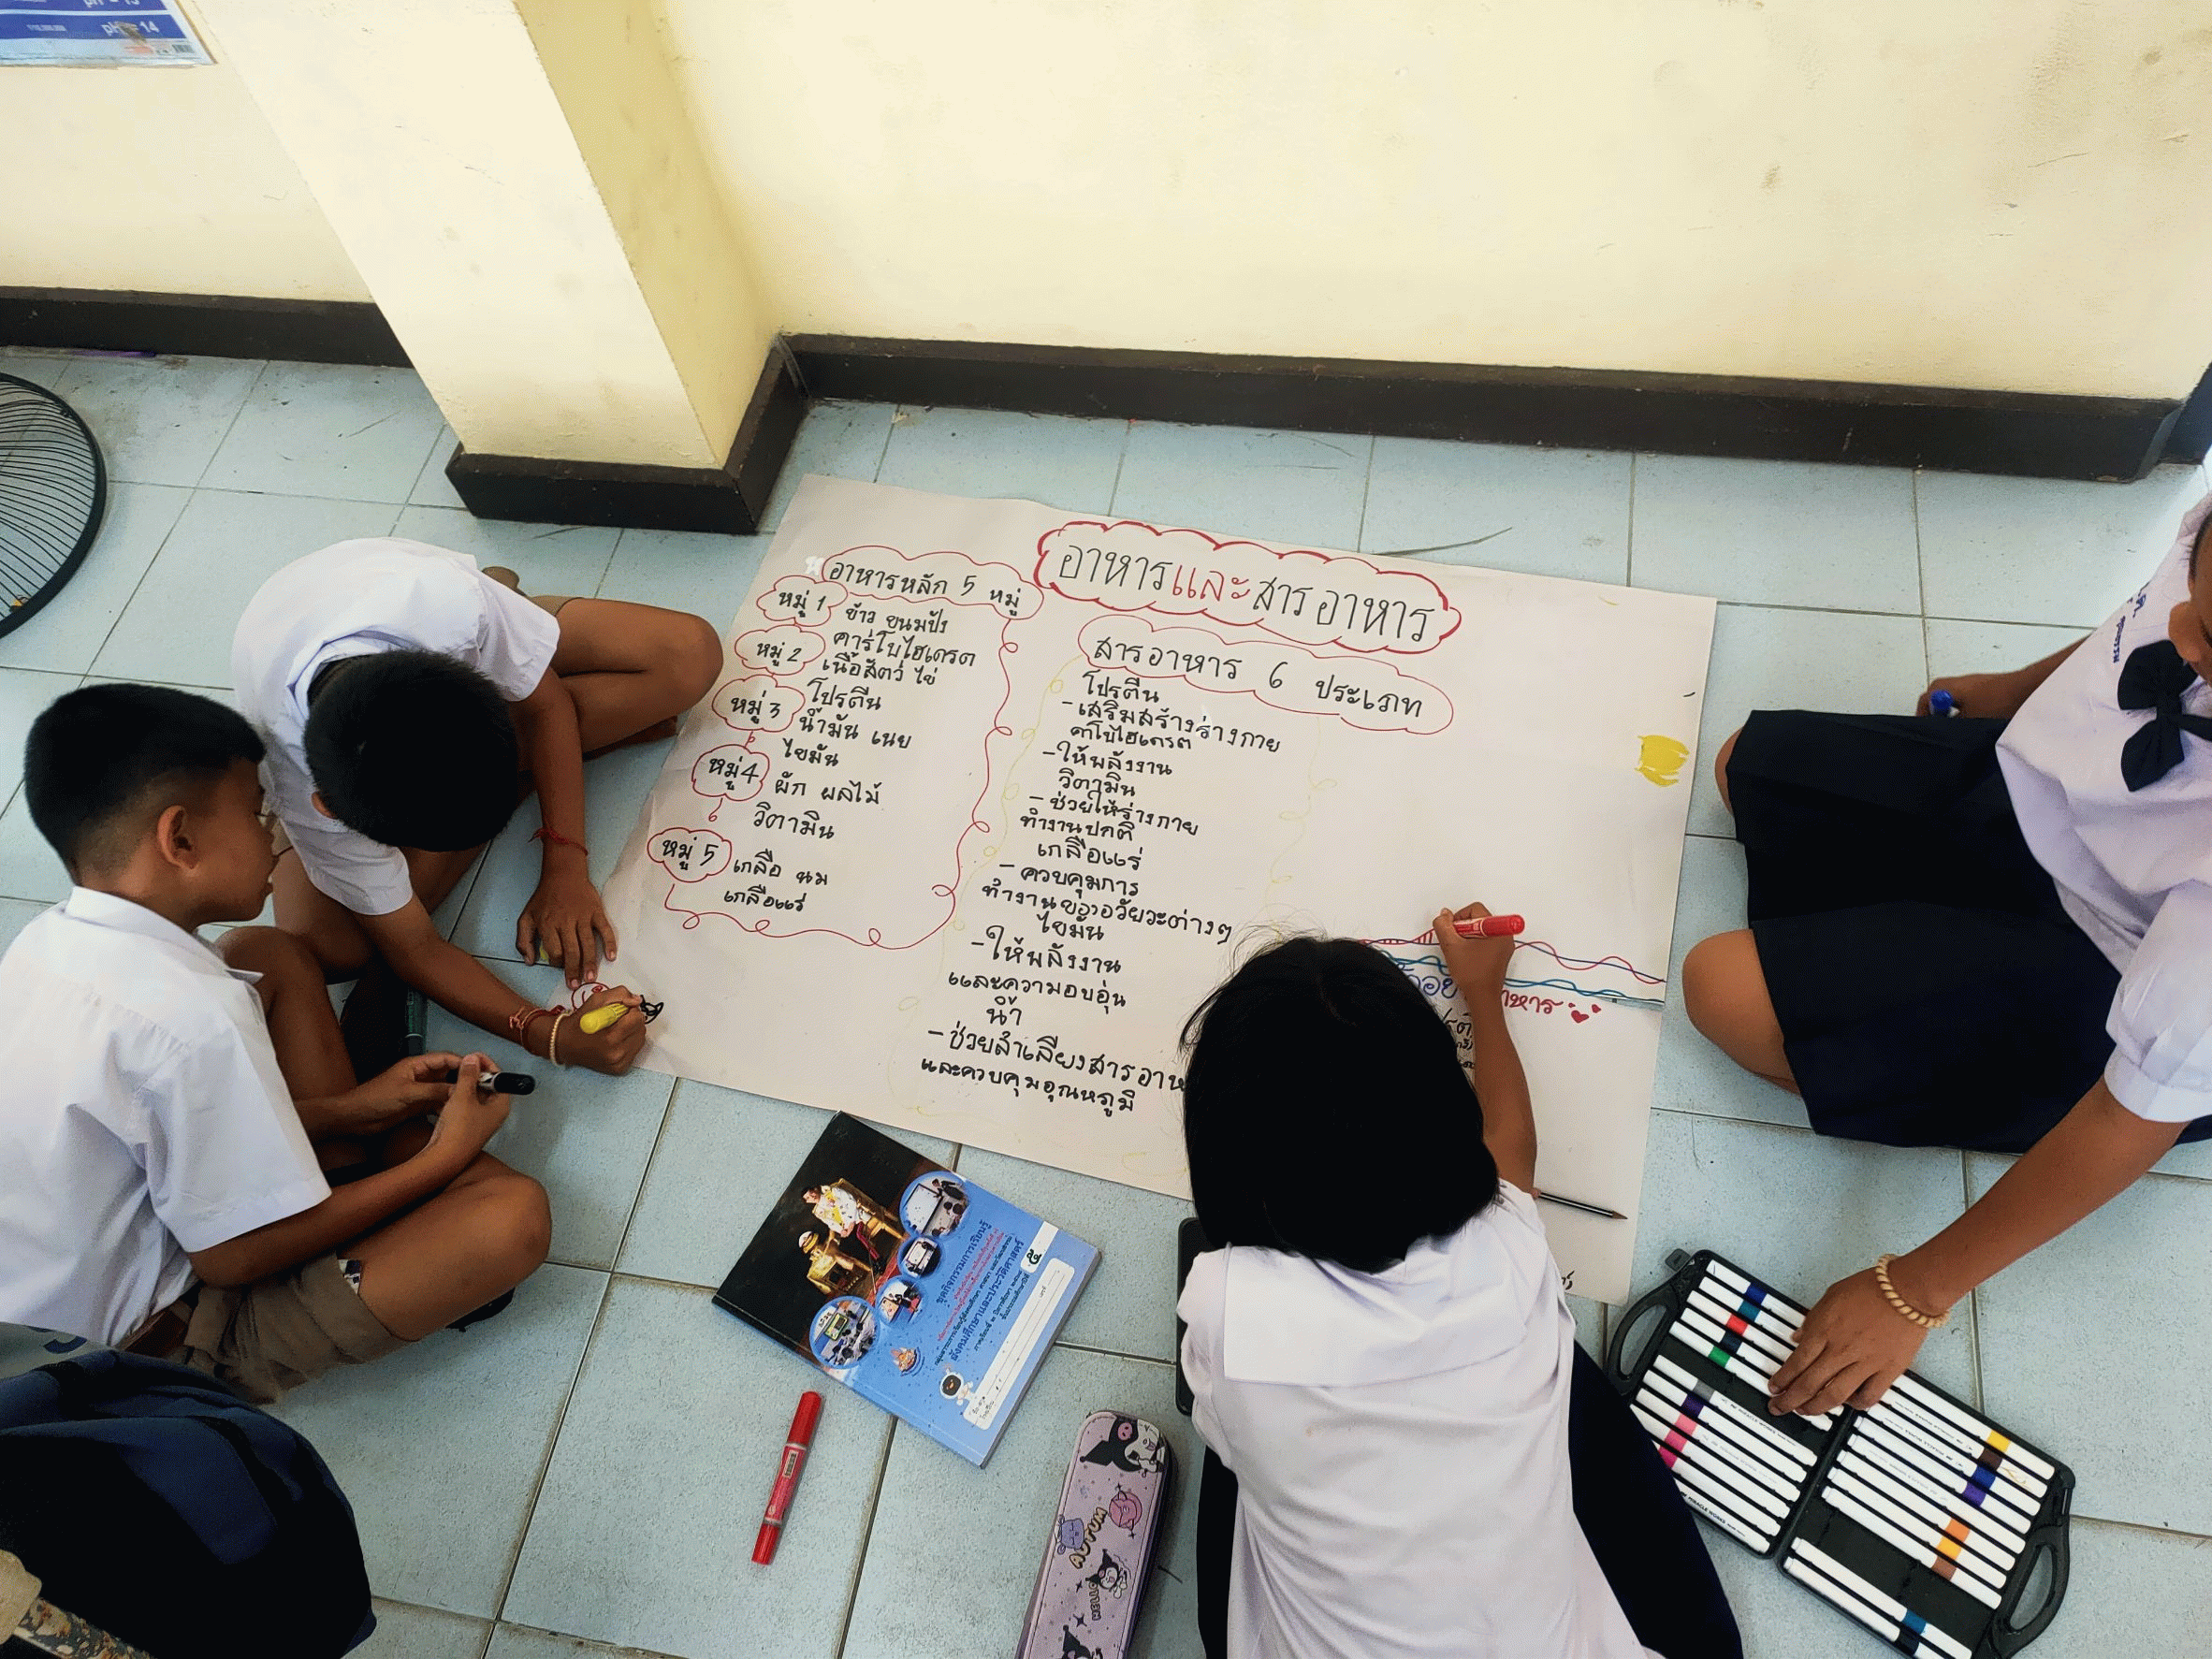 pH = 14
อาหารและสารอาหาร
อาหารหลัก 5 หมู่
หมู่ 1
ข้าว ขนมปัง
คาร์โบไฮเดรต
หมู่ 2
เนื้อสัตว์ ไข่
โปรตีน
หมู่ 3
น้ำมัน เนย
ไขมัน
หมู่ 4
ผัก ผลไม้
วิตามิน
หมู่ 5
เกลือ นม
เกลือแร่
สารอาหาร 6 ประเภท
โปรตีน
- เสริมสร้างร่างกาย
คาโบไฮเดรต
- ให้พลังงาน
วิตามิน
- ช่วยให้ร่างกาย
ทำงานปกติ
เกลือแร่
- ควบคุมการ
ทำงานของอวัยวะต่างๆ
ไขมัน
- ให้พลังงาน
และความอบอุ่น
น้ำ
- ช่วยลำเลียงสารอาห
และควบคุมอุณหภูมิ
าหาร
ชุดกิจกรรมการเรียนรู้
สังคมศึกษาและประวัติศาสตร์
AUTUM
HELLO